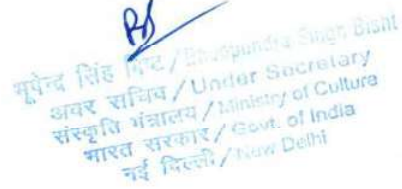 भूपेन्द्र सिंह बिष्ट / Bhupundra Singh Bisht
अवर सचिव / Under Secretary
संस्कृति मंत्रालय / Ministry of Culture
भारत सरकार / Govt. of India
नई दिल्ली / New Delhi